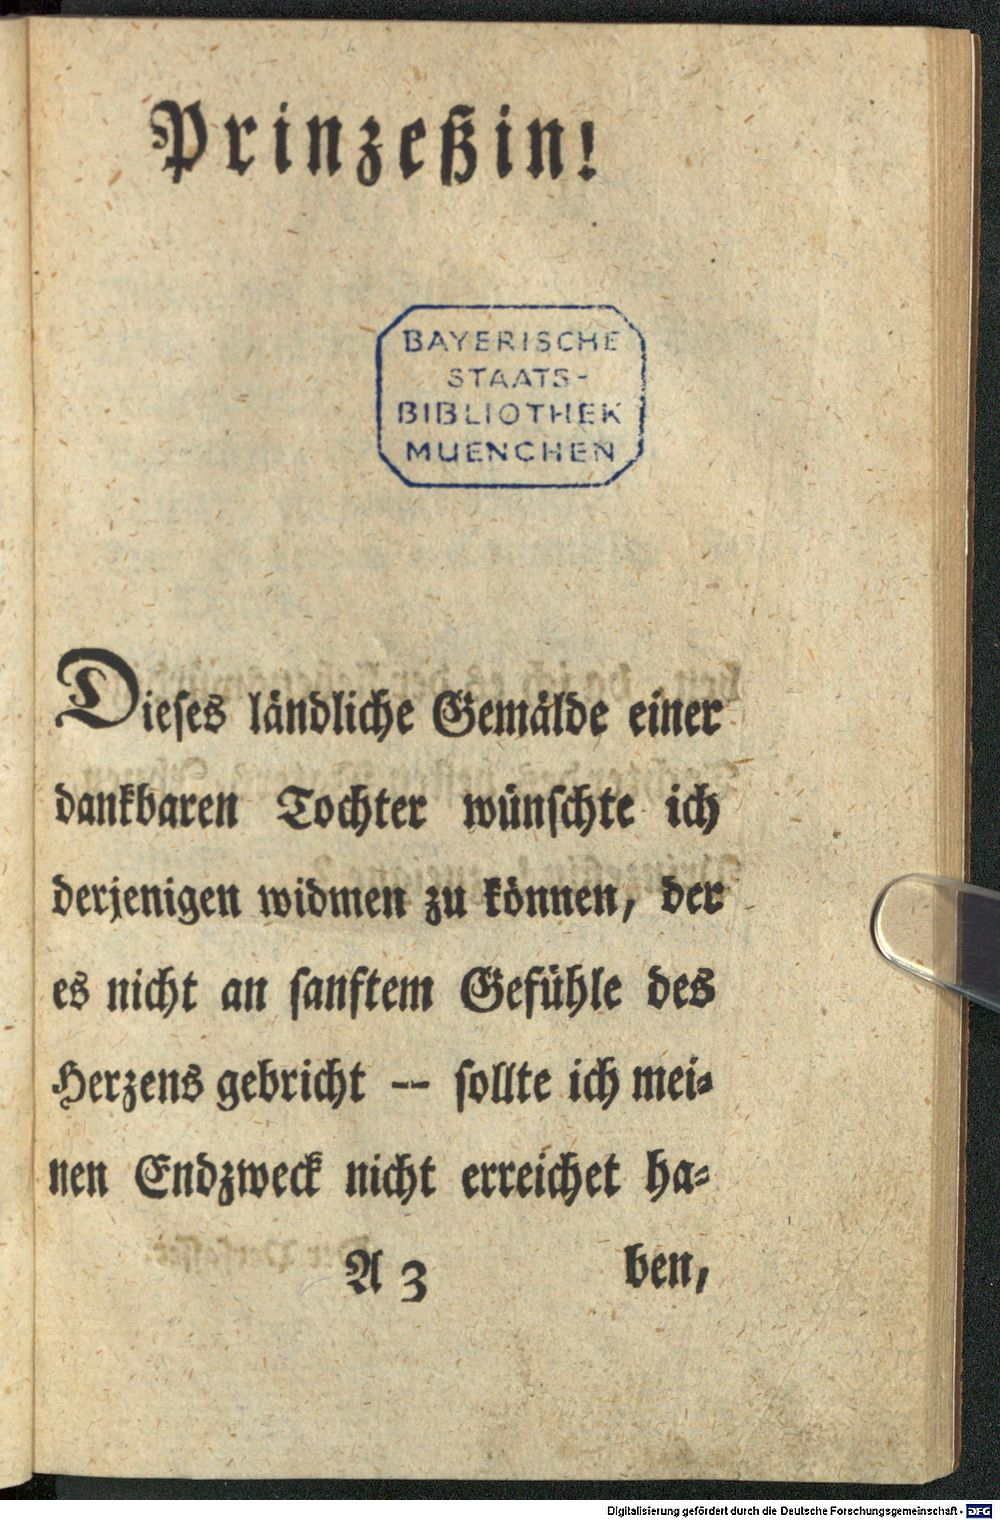 Prinzeßin!
BAYERISCHE
STAATS-
BIBLIOTHEK
MUENCHEN
Dieses ländliche Gemälde einer
dankbaren Tochter wünschte ich
derjenigen widmen zu können, der
es nicht an sanftem Gefühle des
Herzens gebricht -- sollte ich mei-
nen Endzweck nicht erreichet ha-
A 3 ben,
Digitalisierung gefördert durch die Deutsche Forschungsgemeinschaft - DFG